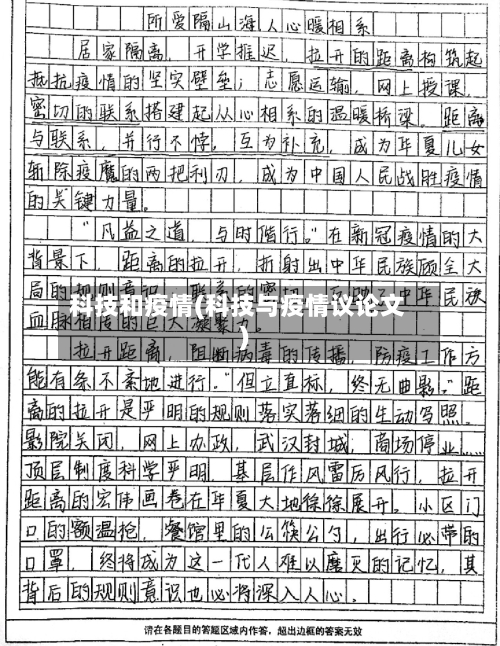 所爱隔山海人心暖相系
居家隔离,开学推迟,拉开的距离构筑起
抵抗疫情的坚实壁垒;志愿运输,网上授课,
密切的联系搭建起从心相系的温暖桥梁。距离
与联系,并行不悖,互为补充,成为华夏儿女
斩除疫魔的两把利刃,成为中国人民战胜疫情
的关键力量。
“凡益之道,与时偕行。”在新冠疫情的大
背景下,距离的拉开,折射出中华民族顾全大
局的规则意识,联系的密切,中华民族
科技和疫情(科技与疫情议论文
)
血脉相传的巨大凝聚力。
拉开距离,阻断病毒的传播,防疫工作方
能有条不紊地进行。“但立直标,终无曲影。”距
离的拉开是严明的规则落实落细的生动写照。
影院关闭,网上办政,武汉封城,商场停业……
顶层制度科学严明,基层作风雷厉风行,拉开
距离的宏伟画卷在华夏大地徐徐展开。小区门
口的额温枪,餐馆里的公筷公勺,出行必带的
口罩,终将成为这一代人难以磨灭的记忆,其
背后的规则意识也必将深入人心。
请在各题目的答题区域内作答,超出边框的答案无效